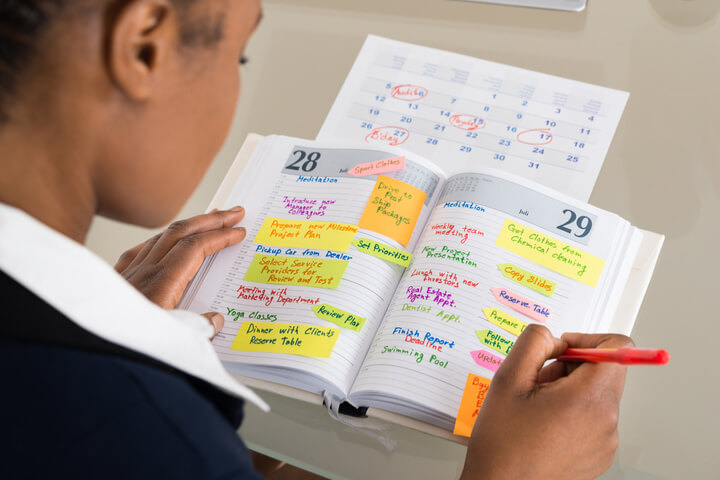 Audit
5 6 7 1 2 3 4
12 13 14 15 8 9 11
Payroll
19 20 21 16 17 18
26 27 28 22 23 24 25
B'day
29 30 31
28
Juli
Sport Clothes
Meditation
Introduce new
Manager to
colleagues
Drive to
Post
Ship
Packages
Prepare new Milestone
Project Plan
Pickup Car from Dealer
Set Priorities
Select Service
Providers for
Review and Test
Meeting with
Marketing Department
Review Plan
Yoga Classes
Dinner with Clients
Reserve Table
Juli
29
Meditation
Weekly team
meeting
Get Clothes from
Chemical cleaning
New Project
Presentation
Copy Slides
Lunch with
Investors new
Real Estate
Agent Appt.
Reserve Table
Dentist Appt.
Prepare
Finish Report
Deadline
Follow
with
Swimming Pool
Update